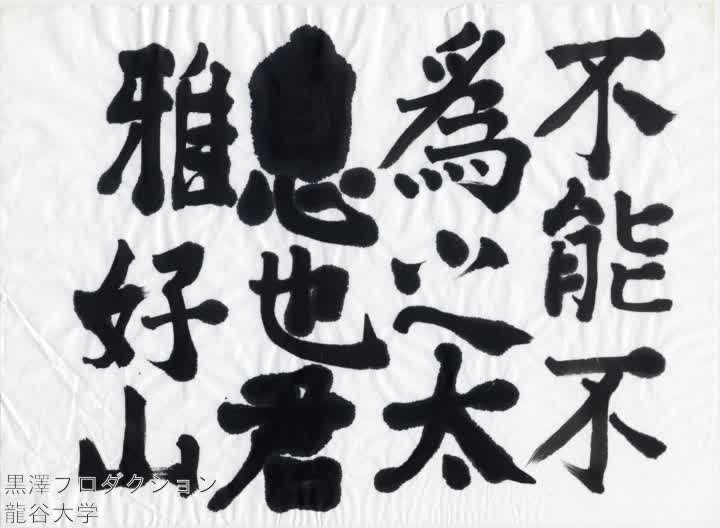 不能不
爲之太
息也君
雅好山
黒澤プロダクション
龍谷大学